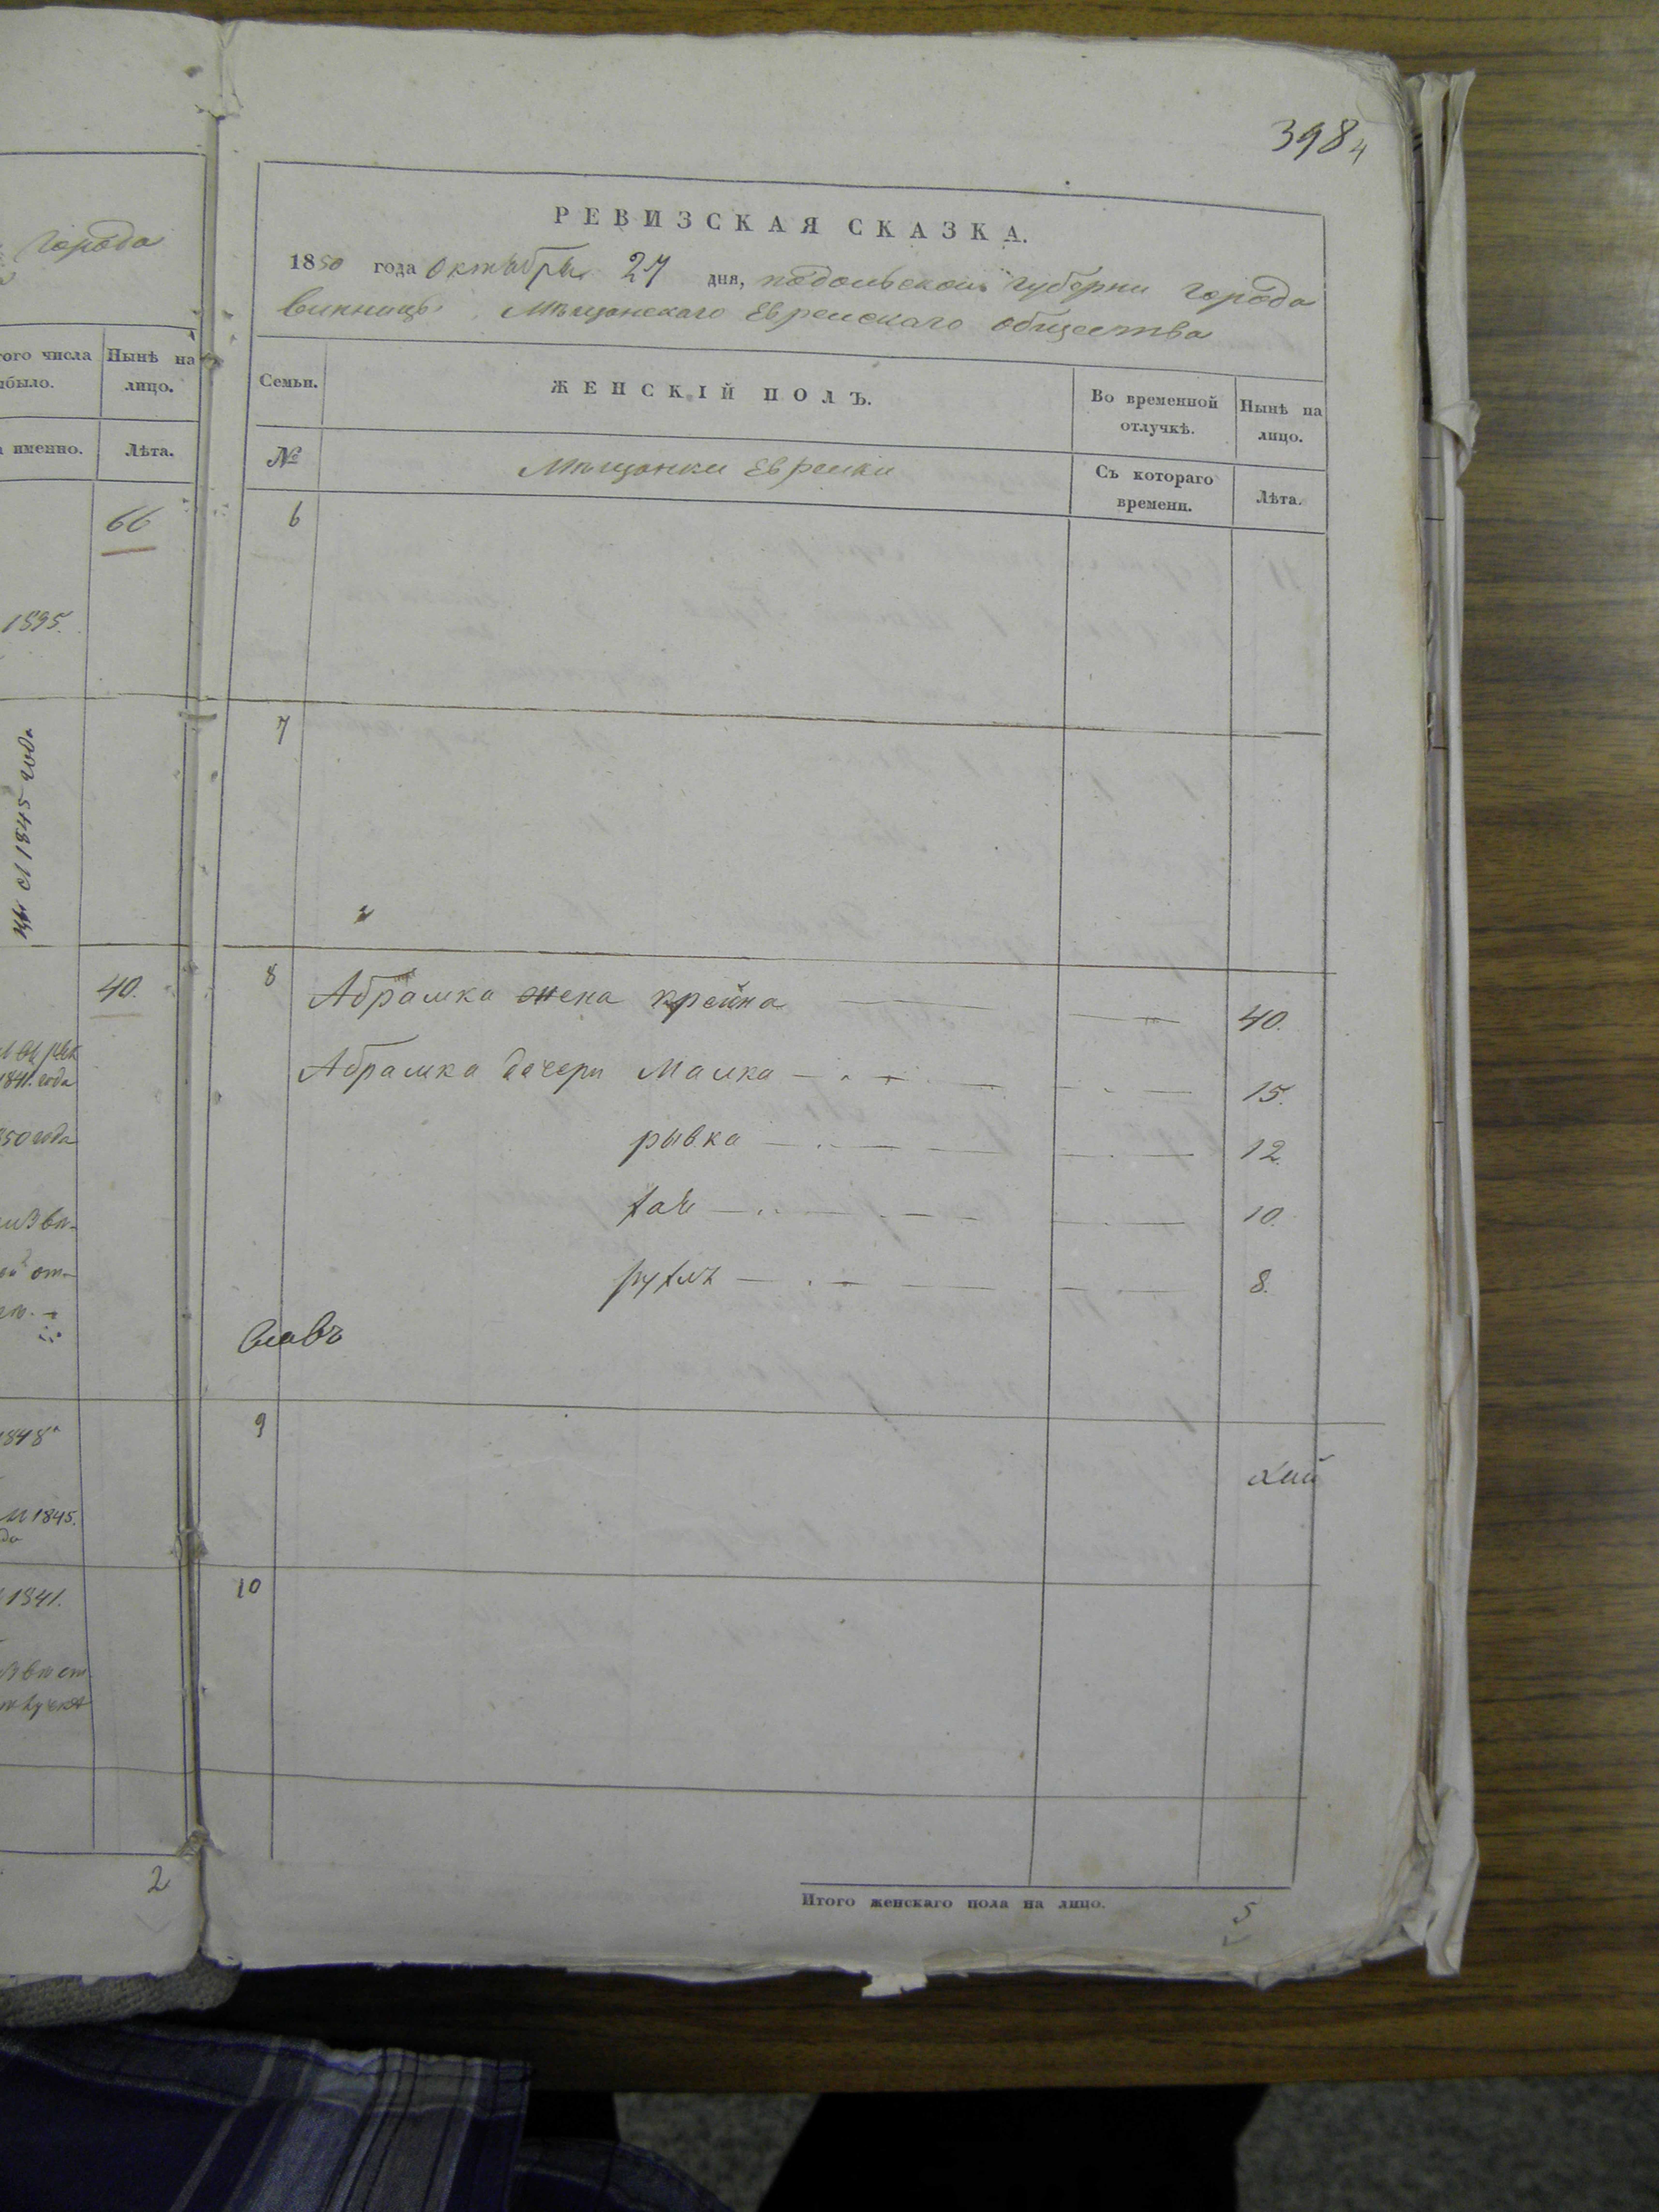 города
того числа
Нынѣ на
было.
лицо.
именно.
Лѣта.
66
1895.
съ 1845 года
40.
1841. года
850 года
от-
1848
1845.
1841.
2
398 4
РЕВИЗСКАЯ СКАЗКА.
1850 года октября 27 дня, подольской губерни города
винницы Мѣщанскаго Еврейскаго общества
Семьи. ЖЕНСКІЙ ПОЛЪ. Во временной отлучкѣ. Нынѣ на лицо.
№ Мѣщанки Еврейки Съ котораго времени. Лѣта.
6
7
8 Абрамка жена крейна 40.
Абрамка дочери Малка 15.
рывка 12.
хая 10.
рухля 8.
9
10
Итого женскаго пола на лицо. 5